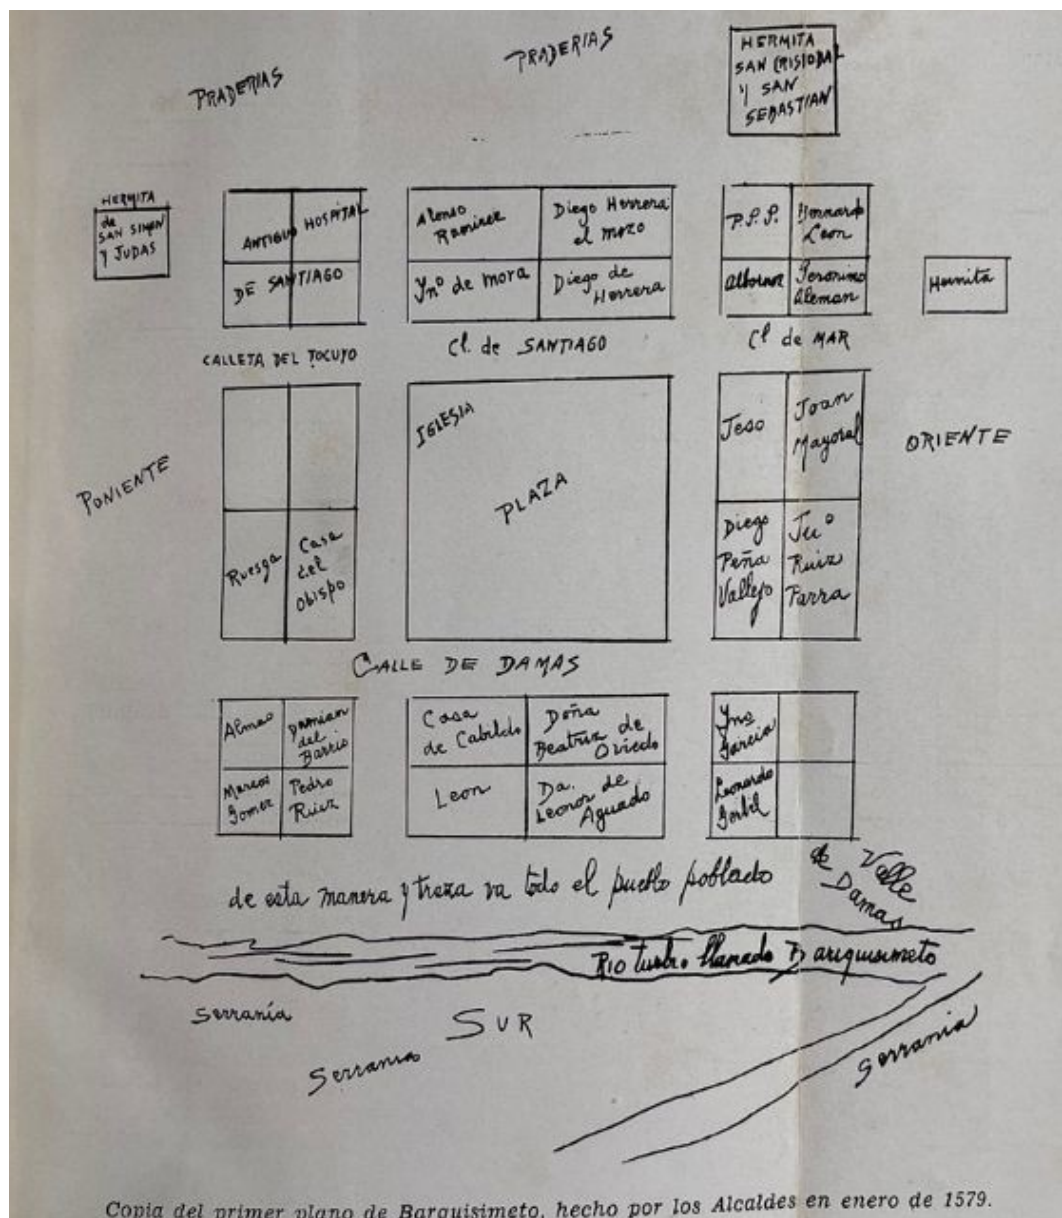 PRADERIAS
PRADERIAS
HERMITA
SAN CRISTOBAL
Y SAN
SEBASTIAN
HERMITA
de
SAN SIMON
Y JUDAS
ANTIGUO HOSPITAL
DE SANTIAGO
Alonso
Ramirez
Diego Herrera
el mozo
Ynº de Mora
Diego de
Herrera
P.S.P.
Bernardo
Leon
Albornoz
Jeronimo
Aleman
Hermita
CALLETA DEL TOCUYO
Cl. de SANTIAGO
Cl de MAR
PONIENTE
Ruesga
Casa
del
Obispo
IGLESIA
PLAZA
Teso
Joan
Mayoral
Diego
Peña
Vallejo
Juº
Ruiz
Parra
ORIENTE
CALLE DE DAMAS
Almao
Damian
del
Barrio
Marcos
Gomez
Pedro
Ruiz
Casa
de Cabildo
Doña
Beatriz de
Oviedo
Leon
Da.
Leonor de
Aguado
Yno
Garcia
Leonardo
de esta manera y traza va todo el pueblo poblado
Valle
Damas
Rio turbio llamado Bariquisimeto
Serranía
SUR
Serrania
Serrania
Copia del primer plano de Barquisimeto, hecho por los Alcaldes en enero de 1579.